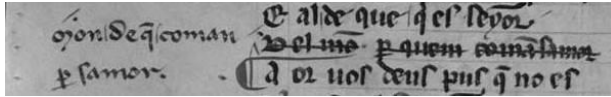 mon de q̃ coman
ꝑ samor.
E al de que q̃ es seyor
Del mõ ꝑ quem comã samor
A or uos deus pus q̃ no es